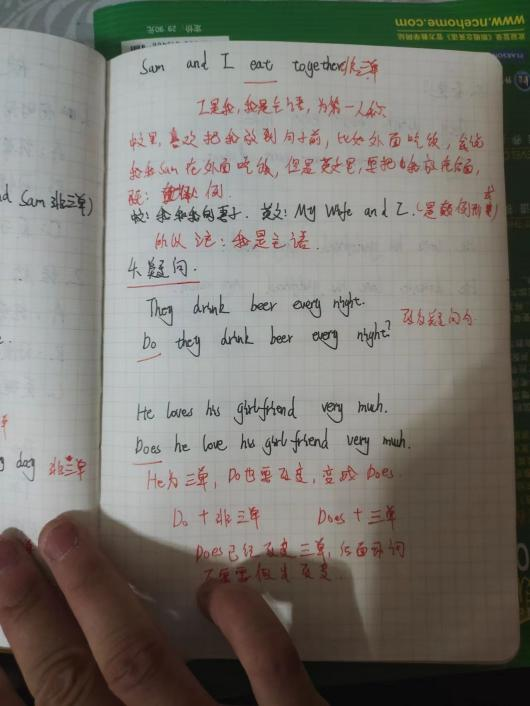 www.ncehome.com
定价 29.90元
PEARSON
Sam and I eat together非三单
I是我，我是主语，为第一人称
喜欢把我放到句子前，比如外面吃饭，会说
我和Sam在外面吃饭，但是英文里，要把我放在后面，
倒.
我和我的妻子. 英文: My Wife and I.(是颠倒形式)
所以注：我是主语.
4、疑问.
They drink beer every night.
Do they drink beer every night?
疑问句
nd Sam 非三单)
He loves his girlfriend very much.
Does he love his girlfriend very much.
dog 非三单
He为三单，Do也要改变，变成Does.
Do + 非三单 Does + 三单
Does已经改变三单，后面动词
不需要做出改变.